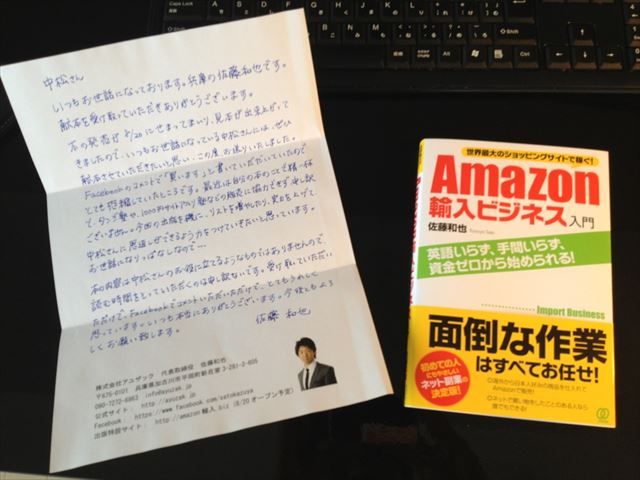 中松さん
いつもお世話になっております。兵庫の佐藤和也です。
献本を受け取っていただきありがとうございます。
本の発売が 8/20にせまってまいり、見本が出来上がって
きましたので、いつもお世話になっている中松さんには、ぜひ
献本させていただきたいと思い、この度お送りいたしました。
Facebookのコメントで「買います」と書いていただいていたので
とても恐縮していたところです。最近は自分の本のことで精一杯
で、タンゴ塾や、1000円サイトアフリ塾などの販売に協力できず、申し訳
ございません。今回の出版を機に、リストを増やしたり、実力を上げて、
中松さんに恩返しができるよう力をつけていきたいと思っています。
お世話になりっぱなしなので…
本の内容は中松さんのお役に立てるようなものではありませんので、
読む時間をとっていただくのは申し訳ないです。受け取っていただい
ただけで、Facebookでコメントいただいただけで、とてもうれしく
思っています。いつも本当にありがとうございます。今後ともよろ
しくお願い致します。
佐藤 和也
株式会社アユザック 代表取締役 佐藤和也
〒675-0101 兵庫県加古川市平岡町新在家3-281-2-605
090-7272-6963 info@ayuzak.jp
公式サイト: http://ayuzak.jp
Facebook: https://www.facebook.com/satokazuya
出版特設サイト: http://amazon輸入.biz (8/20 オープン予定)
世界最大のショッピングサイトで稼ぐ!
Amazon
輸入ビジネス入門
佐藤和也 Kazuya Sato
英語いらず、手間いらず、
資金ゼロから始められる!
Import Business
面倒な作業
はすべてお任せ!
初めての人
にもやさしい
ネット副業の
決定版!
◎海外から日本人好みの商品を仕入れて
Amazonで販売!
◎ネットで買い物をしたことのある人なら
誰でもできる!